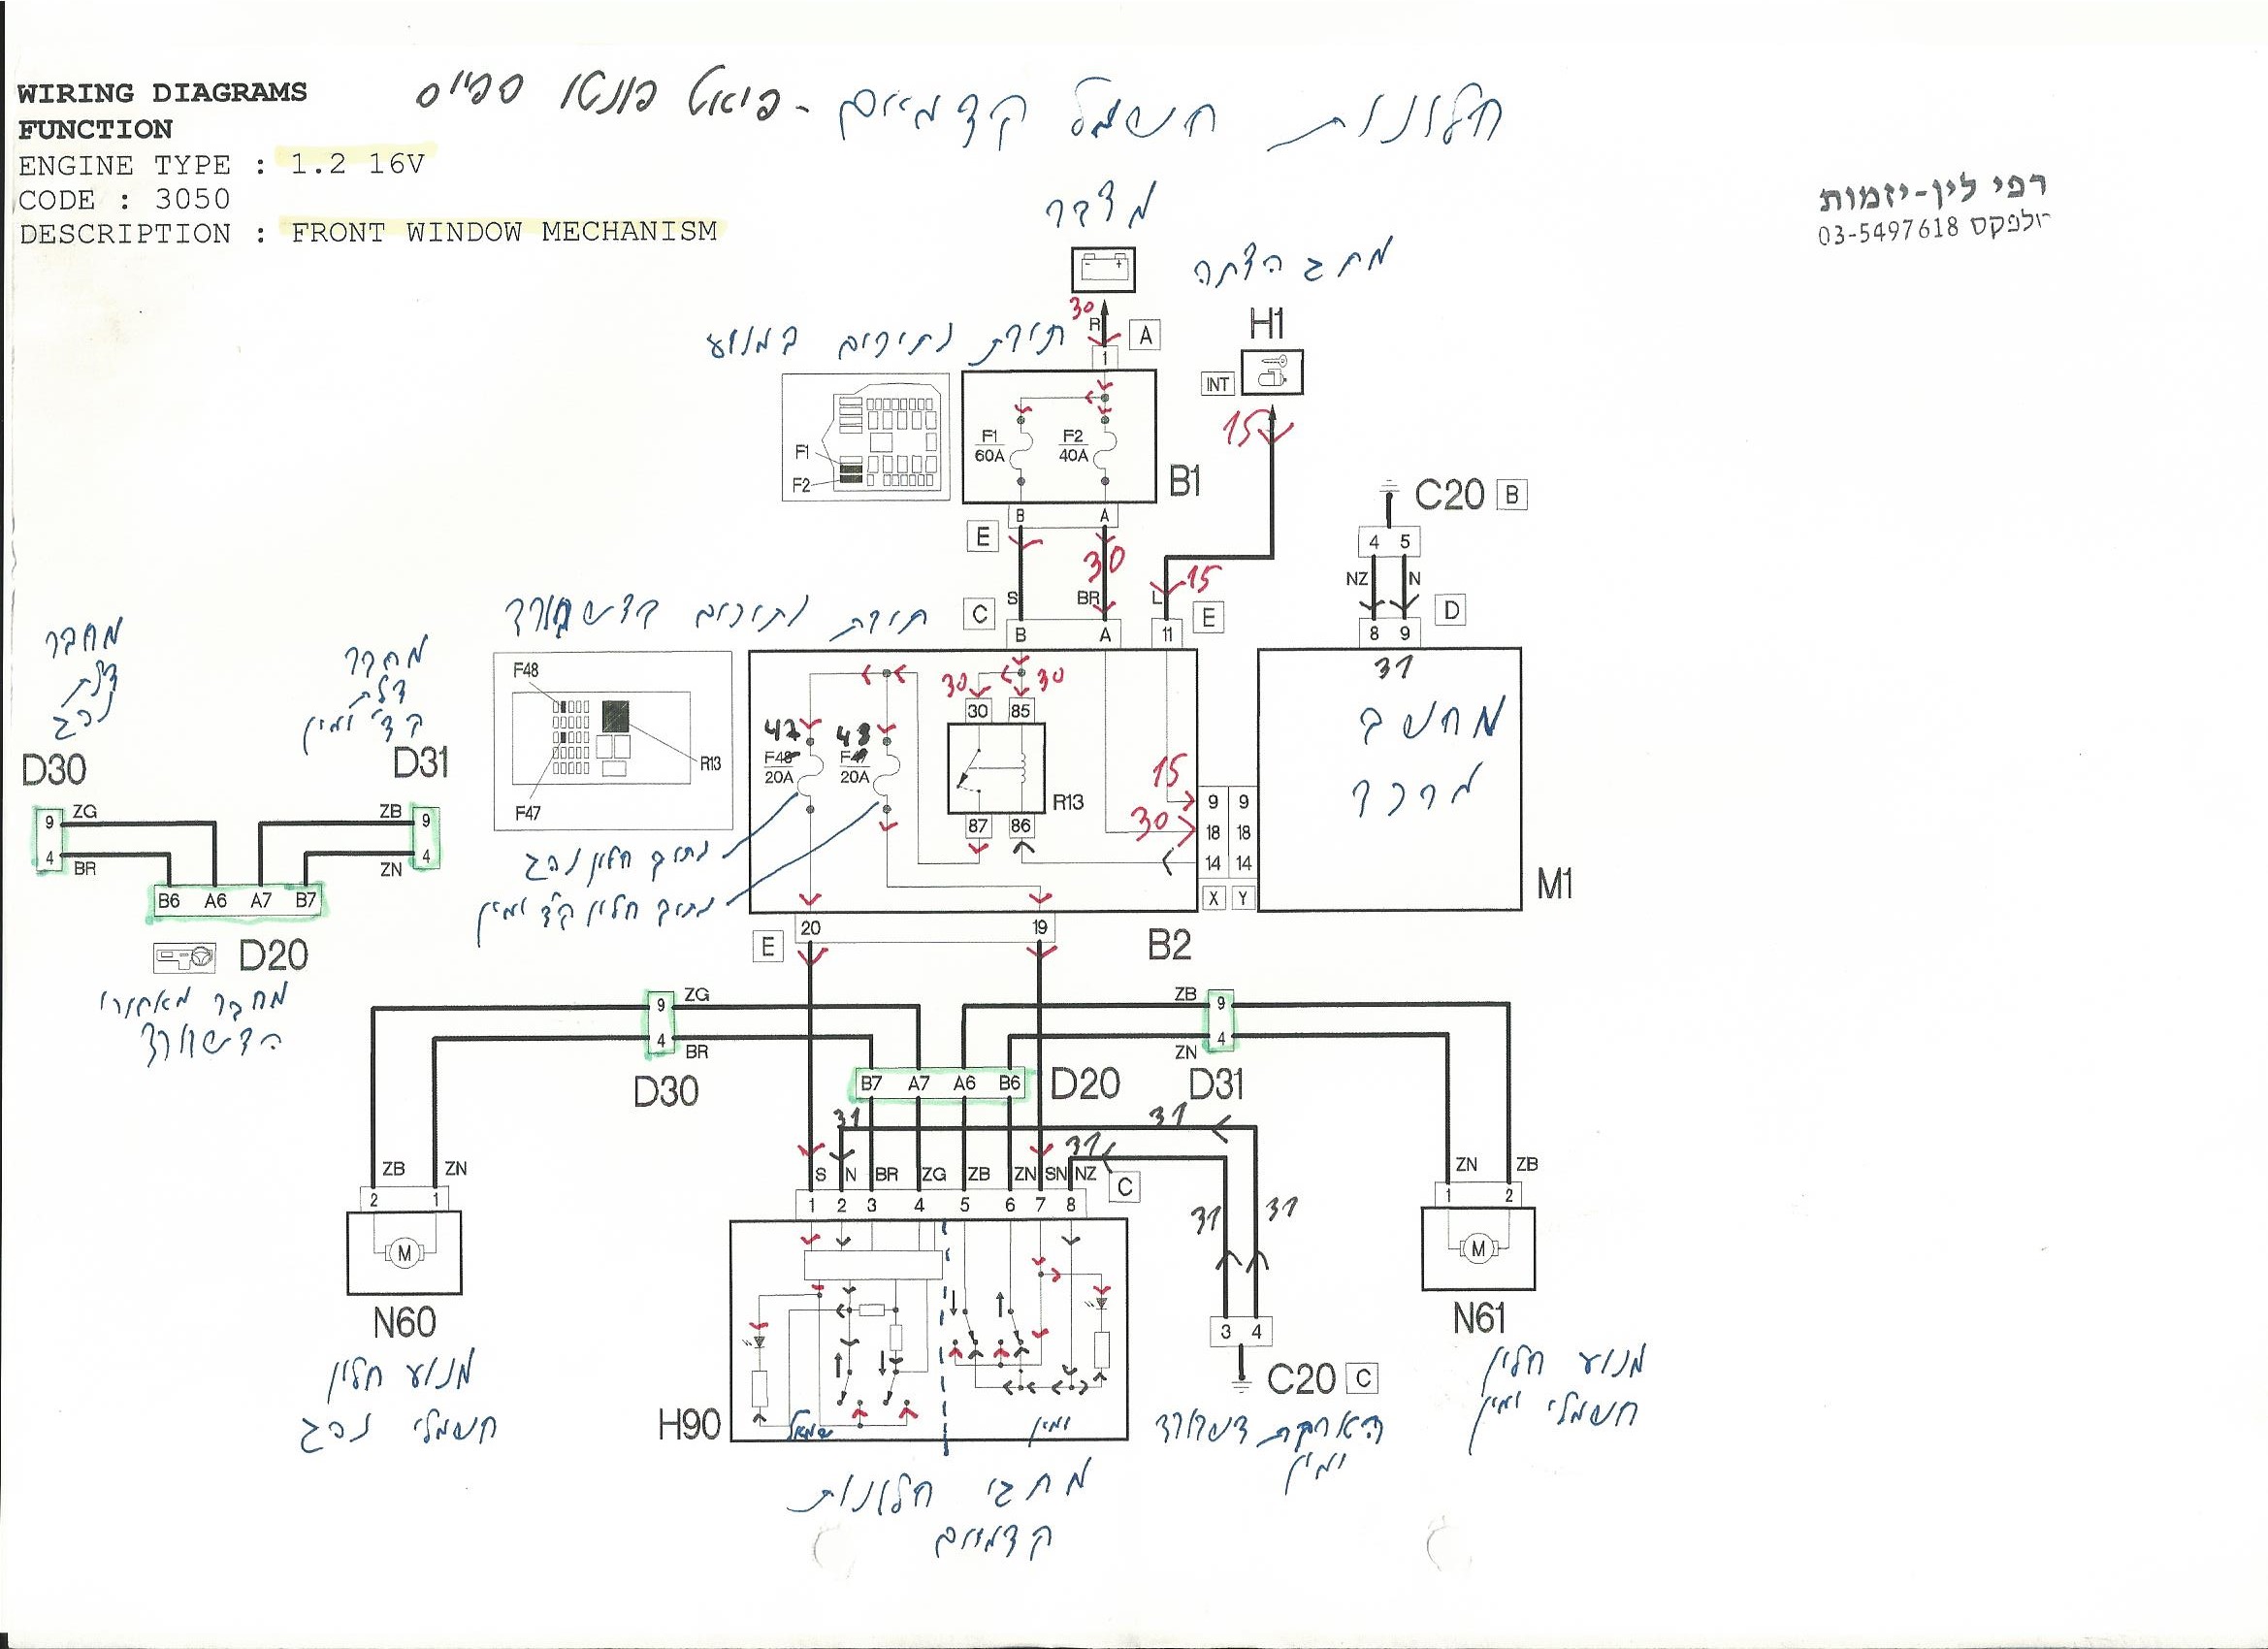 WIRING DIAGRAMS
FUNCTION
ENGINE TYPE : 1.2 16V
CODE : 3050
DESCRIPTION : FRONT WINDOW MECHANISM
חלונות חשמל קדמיים - פיאט פונטו ספייס
רפי לין-יזמות
טלפקס 03-5497618
מצבר
מתג הצתה
30
R
A
1
H1
INT
15
תיבת נתיכים במנוע
F1
F2
F1
60A
F2
40A
B1
B
A
E
30
C20 B
4 5
NZ N
D
8 9
31
S
BR
L
15
C
B
A
11
E
תיבת נתיכים בדשבורד
F48
F47
R13
30
30
30 85
47
F48
20A
48
F47
20A
R13
87 86
15
30
9 9
18 18
14 14
X Y
מחשב
מרכזי
M1
נתיך חלון נהג
נתיך חלון קד ימין
20
19
E
B2
מחבר
דלת
נהג
D30
מחבר
דלת
קד' ימין
D31
9 ZG
4 BR
ZB 9
ZN 4
B6 A6 A7 B7
D20
מחבר מאחורי
הדשבורד
9 ZG
4 BR
D30
ZB 9
ZN 4
D31
B7 A7 A6 B6
D20
31
31
31
S N BR ZG ZB ZN SN NZ
C
1 2 3 4 5 6 7 8
ZB ZN
2 1
M
N60
מנוע חלון
חשמלי נהג
ZN ZB
1 2
M
N61
מנוע חלון
חשמלי ימין
31
31
3 4
C20 C
הארקת דשבורד
ימין
H90
שמאל
ימין
מתגי חלונות
קדמיים